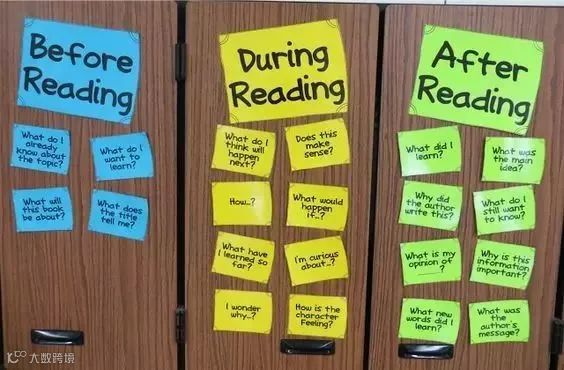 Before
Reading
What do I
already
know about
the topic?
What do I
want to
learn?
What will
this book
be about?
What does
the title
tell me?
During
Reading
What do I
think will
happen
next?
Does this
make
sense?
How...?
What would
happen
if...?
What have
I learned so
far?
I'm curious
about...?
I wonder
why...?
How is the
character
Feeling?
After
Reading
What did I
learn?
What was
the main
idea?
Why did
the author
write this?
What do I
still want
to know?
What is my
opinion of
?
Why is this
information
important?
What new
words did I
learn?
What was
the
author's
message?
大数跨境